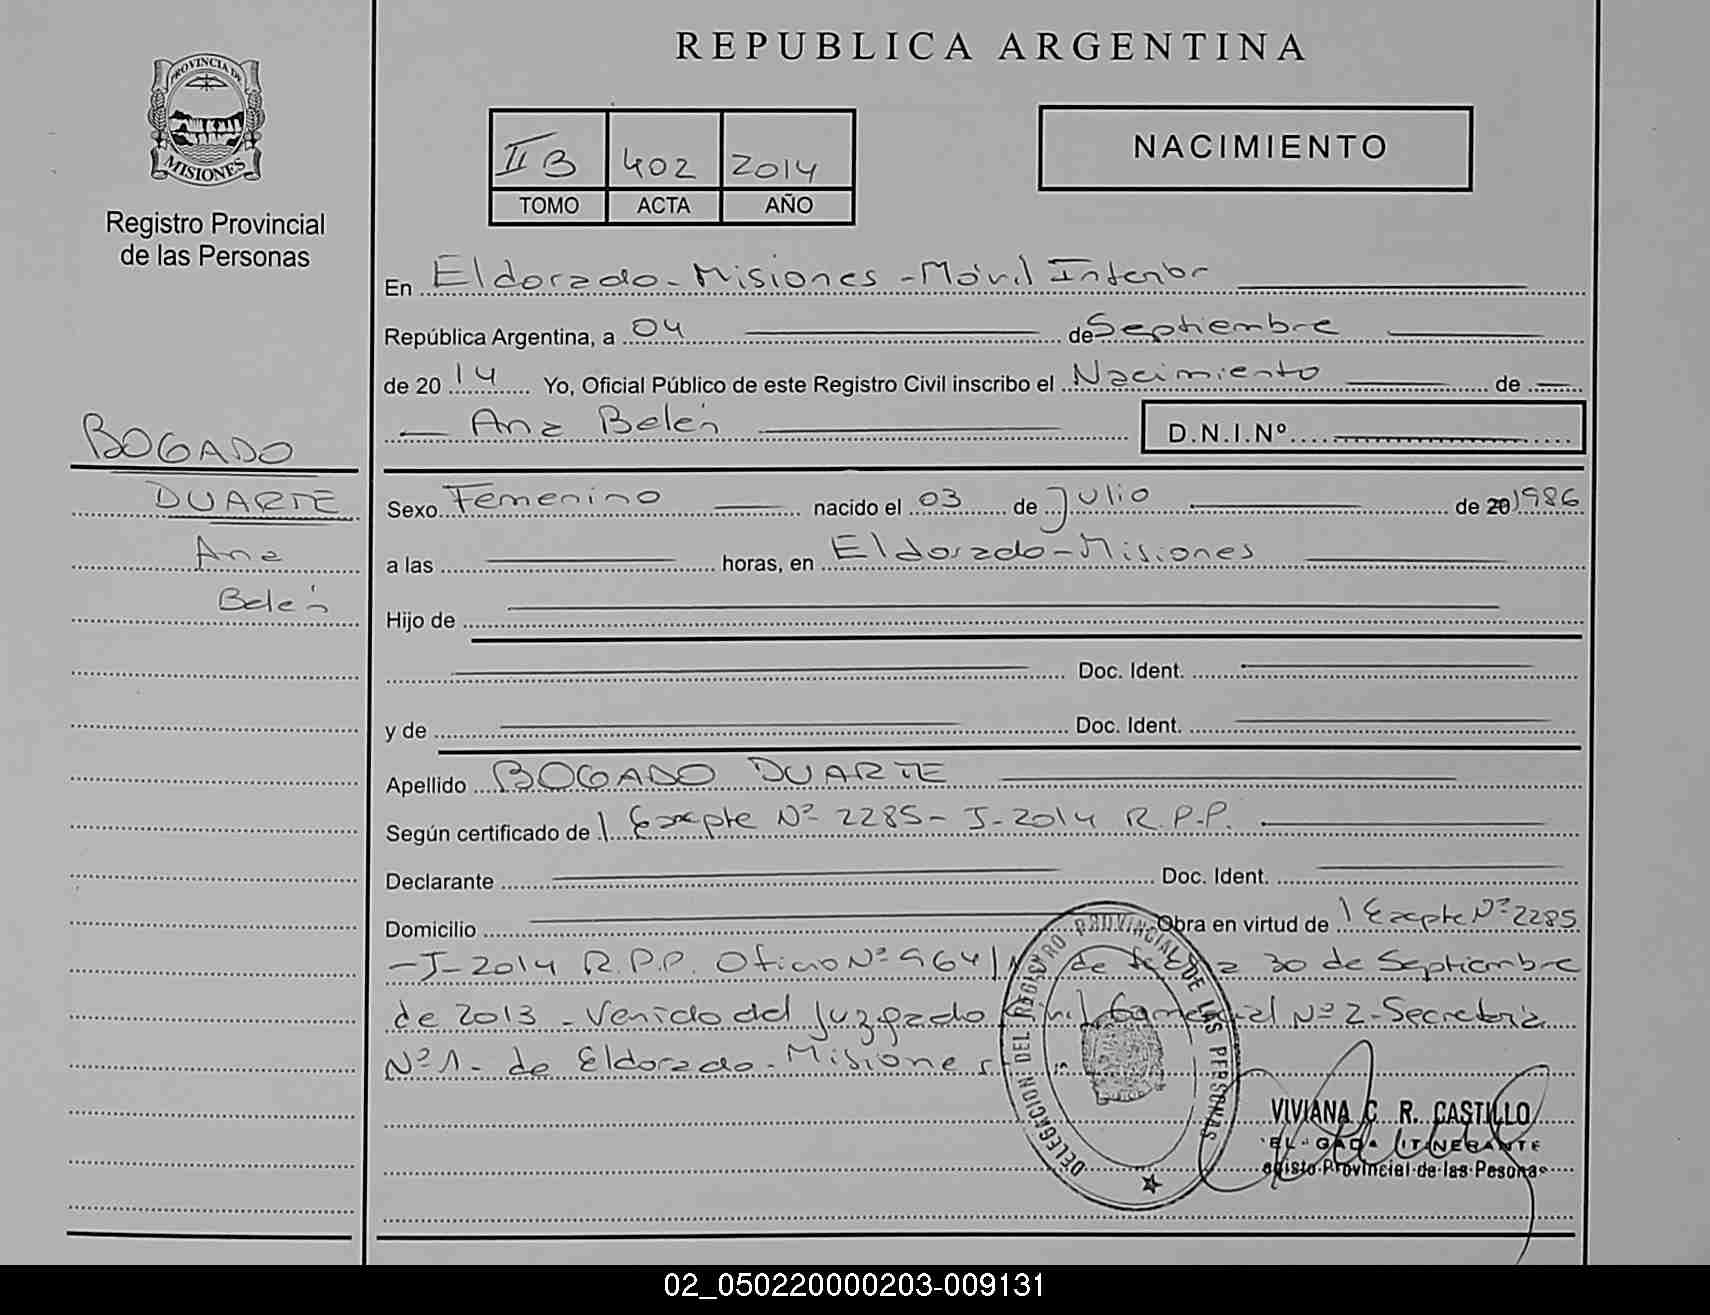 REPUBLICA ARGENTINA
PROVINCIA DE
MISIONES
Registro Provincial
de las Personas
II B 402 2014
TOMO ACTA AÑO
NACIMIENTO
En Eldorado - Misiones - Móvil Interior
República Argentina, a 04 de Septiembre
de 2014 Yo, Oficial Público de este Registro Civil inscribo el Nacimiento de
Ana Belén D.N.I.Nº
BOGADO
DUARTE
Ana
Belén
Sexo Femenino nacido el 03 de Julio de 20 1986
a las horas, en Eldorado - Misiones
Hijo de
Doc. Ident.
y de Doc. Ident.
Apellido BOGADO DUARTE
Según certificado de / Expte Nº 2285 - J - 2014 R.P.P.
Declarante Doc. Ident.
Domicilio Obra en virtud de / Expte Nº 2285
- J - 2014 R.P.P. Oficio Nº 964/ de fecha 30 de Septiembre
de 2013 - Venido del Juzgado Civil Comercial Nº 2 - Secretaria
Nº 1 - de Eldorado - Misiones
DELEGACION DEL REGISTRO PROVINCIAL DE LAS PERSONAS
VIVIANA C. R. CASTILLO
ITINERANTE
Provincial de las Pesonas
02_050220000203-009131